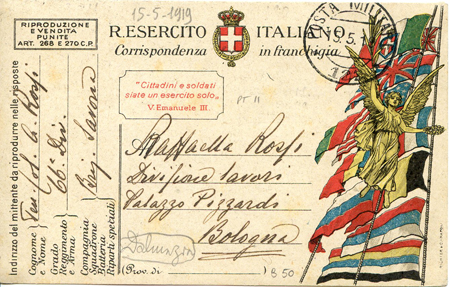 15-5-1919
RIPRODUZIONE
E VENDITA
PUNITE
ART. 268 E 270 C. P.
R. ESERCITO ITALIANO
Corrispondenza in franchigia
POSTA MILITARE
"Cittadini e soldati
siate un esercito solo„
V. Emanuele III.
PT 11
Raffaella Rossi
Divisione lavori
Palazzo Pizzardi
Bologna
Dalmazia
(Prov. di )
B 50
Indirizzo del mittente da riprodurre nelle risposte
Cognome e Nome
Grado
Reggimento e Arma
Compagnia
Squadrone
Batteria
Reparti speciali
Rossi
66ª Div.
Brig. Savona